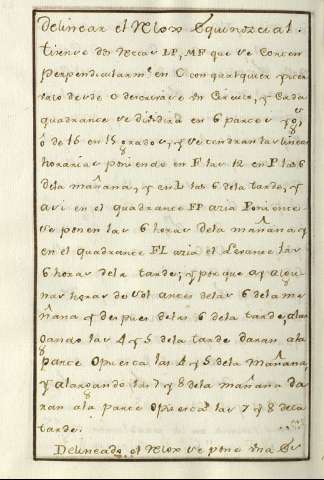 Delinear el Relox Equinozcial.
tirense dos lineas LP, MF que se Corten
perpendicularmte en O con qualquier
valo desde O descrivase Un Circulo, y Cada
quadrante se dividira en 6 partes y 90
ô de 15 en 15 grados, y se tendran las lineas
horarias poniendo en F las 12 en P las 6
dela mañana, y en L las 6 dela tarde, y
asi en el quadrante FP azia Poniente
se ponen las 6 horas dela mañana y
en el quadrante FL azia el Levante las
6 horas dela tarde; y porque ay algu
nas horas de sol antes delas 6 dela ma
ñana y despues delas 6 dela tarde, alar
gando las 4 y 5 dela tarde daran ala
parte Opuesta las 4 y 5 dela Mañana,
y alargando las 7 y 8 dela mañana da
ran ala parte Opuesta las 7 y 8 dela
tarde.
Delineado el Relox se pone Una